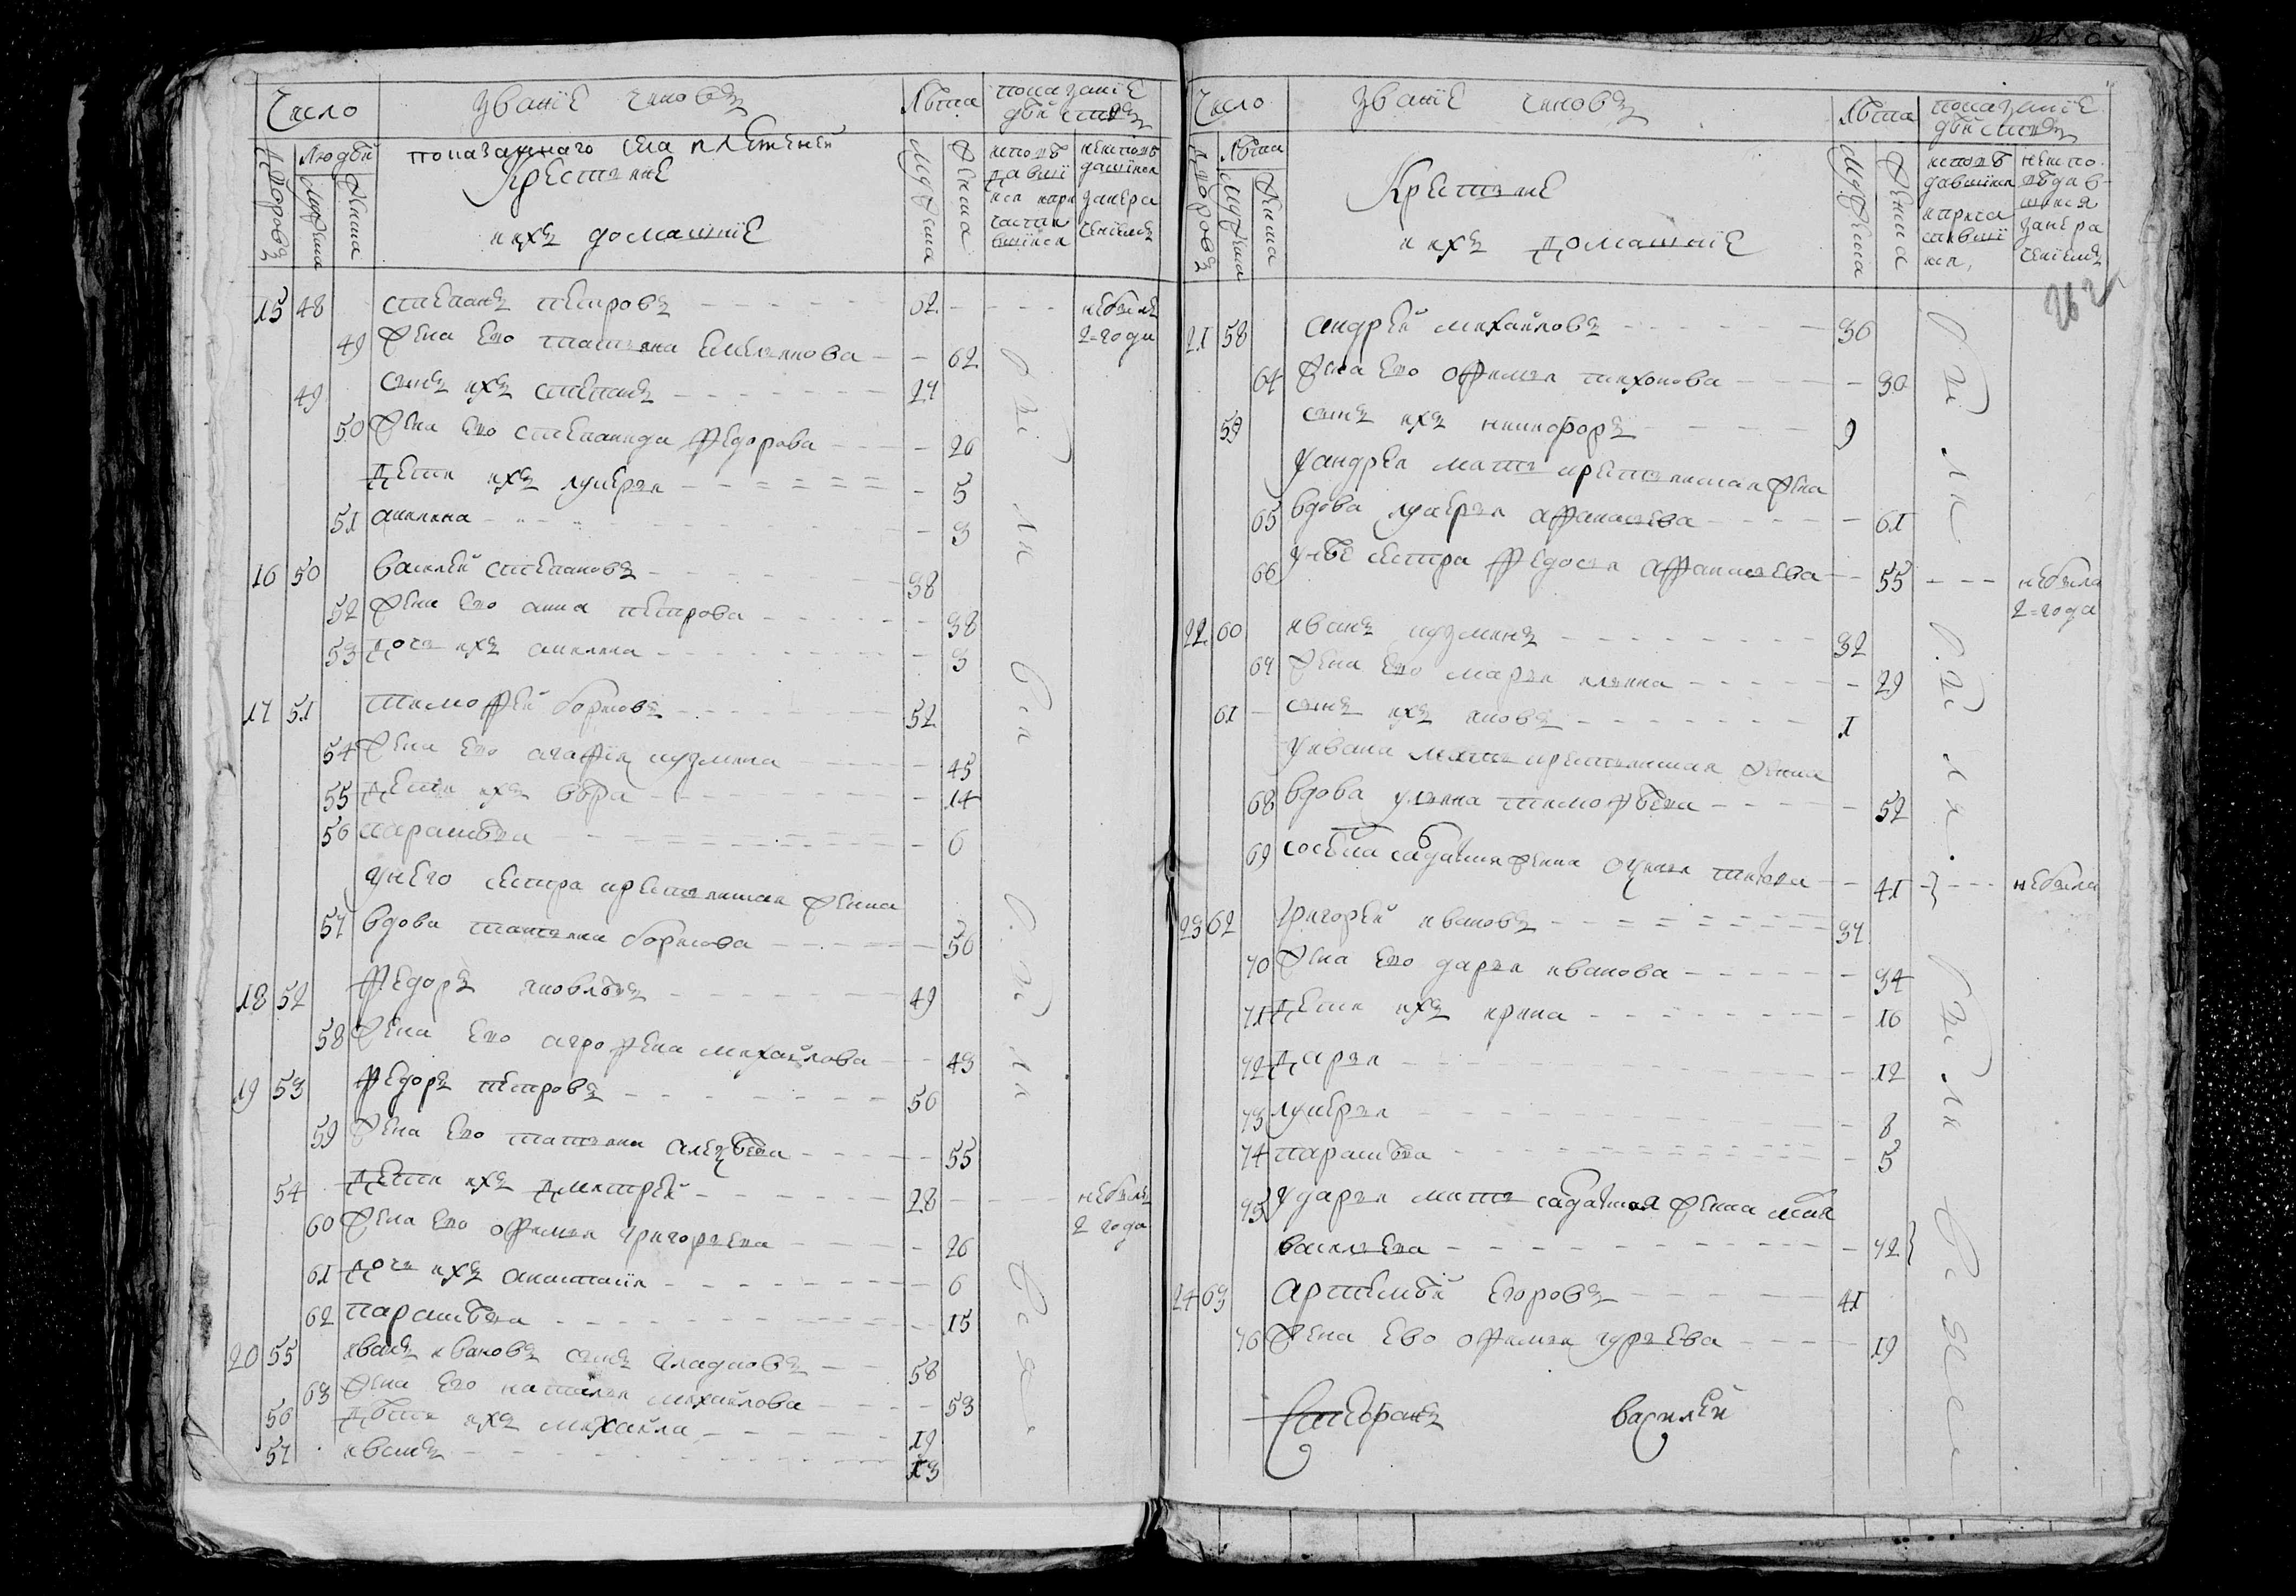 Число Званiе чиновъ Лѣта показанiе дѣйства
дворовъ Людей мужеска женска
показаннаго села плетеней
Крестьяне
и ихъ домашнiе
мужеска женска
исповѣдавшiися и причастившiися
неисповѣдавшiися за нерачениемъ
15 48 степанъ петровъ 62 небылъ
2 года
49 жена ево татьяна емельянова 62
49 сынъ ихъ степанъ 27
50 жена ево степанида федорова 26
дети ихъ лукерья 5
51 акилина 3
16 50 василей степановъ 38
52 жена ево анна петрова 38
53 дочь ихъ акилина 3
17 51 тимофей борисовъ 52
54 жена ево агафiя кузмина 45
55 дети ихъ вѣра 14
56 парасковья 6
у него сестра крестьянская женка
57 вдова татьяна борисова 56
18 52 федоръ яковлевъ 49
58 жена ево агрофена михайлова 43
19 53 федоръ петровъ 56
59 жена ево татьяна алексѣева 55
54 дети ихъ дмитрей 28 небылъ
2 года
60 жена ево офимья григорьева 26
61 дочь ихъ анастасiя 6
62 парасковья 15
20 55 иванъ ивановъ сынъ гладковъ 58
63 жена ево наталья михайлова 53
56 дѣти ихъ михаила 19
57 иванъ 13
были
вси
были
все
Число Званiе чиновъ Лѣта показанiе дѣйства
дворовъ мужеска женска
Крестьяне
и ихъ домашнiе
мужеска женска
исповѣдавшiися и причастившiися
неисповѣдавшiися за нерачениемъ
262
21 58 андрей михайловъ 36
64 жена ево офимья тихонова 30
59 сынъ ихъ никифоръ 9
у андрея мать крестьянская жена
65 вдова лукерья афанасьева 61
66 у неѣ сестра федосья афанасьева 55 небыла
2 года
22 60 иванъ кузминъ 32
67 жена ево марья ильина 29
61 сынъ ихъ яковъ 1
у ивана мать крестьянская женка
68 вдова ульяна тимофѣева 52
69 41 небыла
23 62 григорей ивановъ 37
70 жена ево дарья иванова 34
71 дети ихъ ирина 16
72 дарья 12
73 лукерья 8
74 парасковья 5
75 у дарьи мать салдатская женка
васильева 72
24 63 артемѣй егоровъ 41
76 жена ево офимья гурьева 19
были
были
были
все
василей